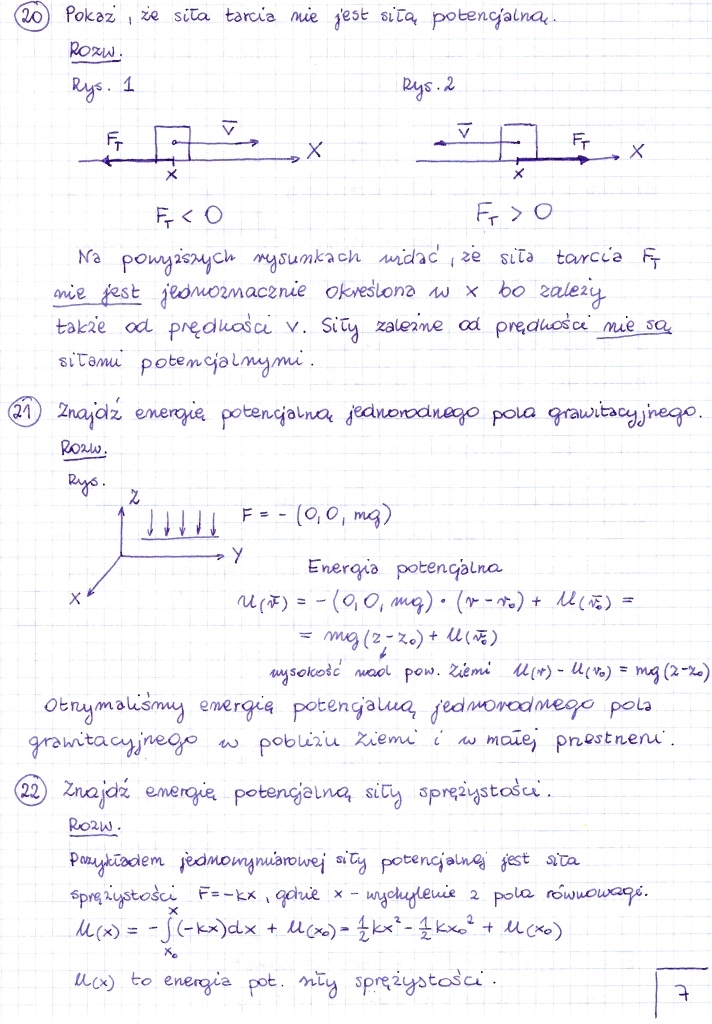 20 Pokaż, że siła tarcia nie jest siłą potencjalną.
Rozw.
Rys. 1 Rys. 2
F_T v̅ X v̅ F_T X
x x
F_T < 0 F_T > 0
Na powyższych rysunkach widać, że siła tarcia F_T
nie jest jednoznacznie określona w x bo zależy
także od prędkości v. Siły zależne od prędkości nie są
siłami potencjalnymi.
21 Znajdź energię potencjalną jednorodnego pola grawitacyjnego.
Rozw.
Rys.
Z F = - (0, 0, mg)
Y
Energia potencjalna
X U(r̅) = - (0, 0, mg) · (r - r₀) + U(r̅₀) =
= mg (z - z₀) + U(r̅₀)
wysokość nad pow. Ziemi U(r) - U(r₀) = mg (z - z₀)
Otrzymaliśmy energię potencjalną jednorodnego pola
grawitacyjnego w pobliżu Ziemi i w małej przestrzeni.
22 Znajdź energię potencjalną siły sprężystości.
Rozw.
Przykładem jednowymiarowej siły potencjalnej jest siła
sprężystości F = -kx, gdzie x - wychylenie z poła równowagi.
U(x) = - ∫_{x₀}^{x} (-kx)dx + U(x₀) = ½ kx² - ½ kx₀² + U(x₀)
U(x) to energia pot. siły sprężystości.
7